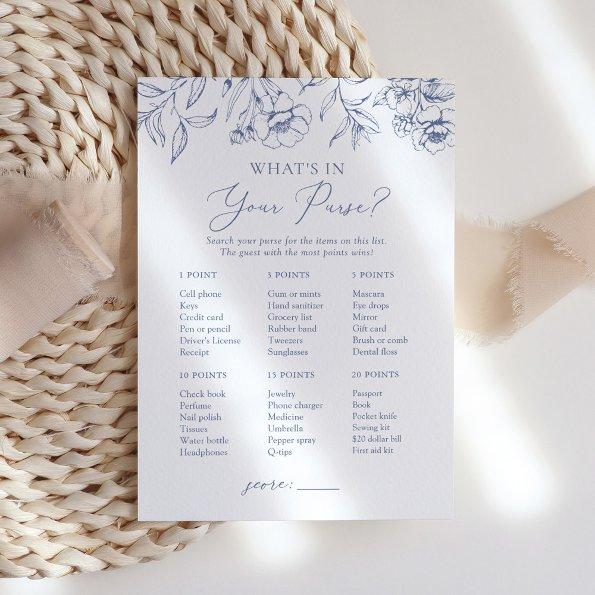 WHAT'S IN
Your Purse?
Search your purse for the items on this list.
The guest with the most points wins!
1 POINT
Cell phone
Keys
Credit card
Pen or pencil
Driver's License
Receipt
3 POINTS
Gum or mints
Hand sanitizer
Grocery list
Rubber band
Tweezers
Sunglasses
5 POINTS
Mascara
Eye drops
Mirror
Gift card
Brush or comb
Dental floss
10 POINTS
Check book
Perfume
Nail polish
Tissues
Water bottle
Headphones
15 POINTS
Jewelry
Phone charger
Medicine
Umbrella
Pepper spray
Q-tips
20 POINTS
Passport
Book
Pocket knife
Sewing kit
$20 dollar bill
First aid kit
score: ______